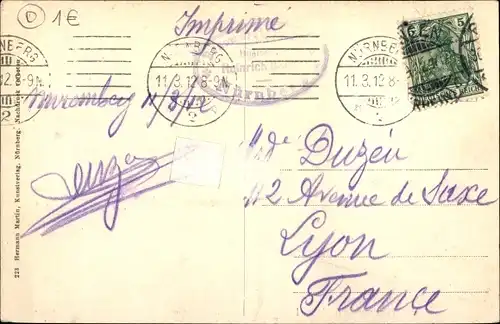 D 1€
Imprimé
NÜRNBERG
12.8-9V.
2
NÜRNBERG
11.3.12.8-9V.
2
NÜRNBERG
11.3.12.8-
2
5 5
Heinrich
Nürnberg
Nuremberg 11/3/12
Mde Duzéu
112 Avenue de Saxe
Lyon
France
223 Hermann Martin, Kunstverlag, Nürnberg. Nachdruck verboten.